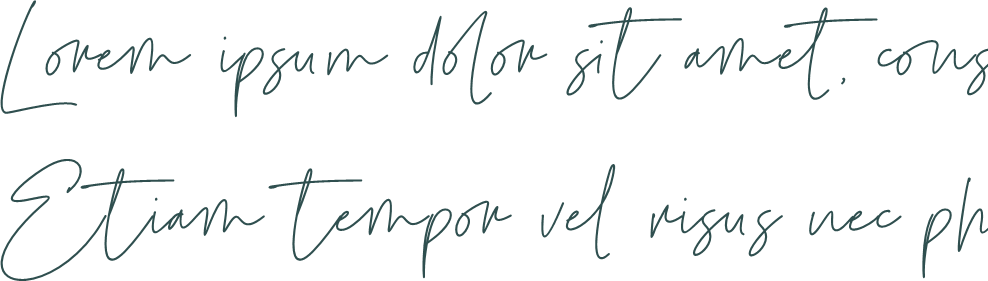 Lorem ipsum dolor sit amet, cons
Etiam tempor vel risus nec ph